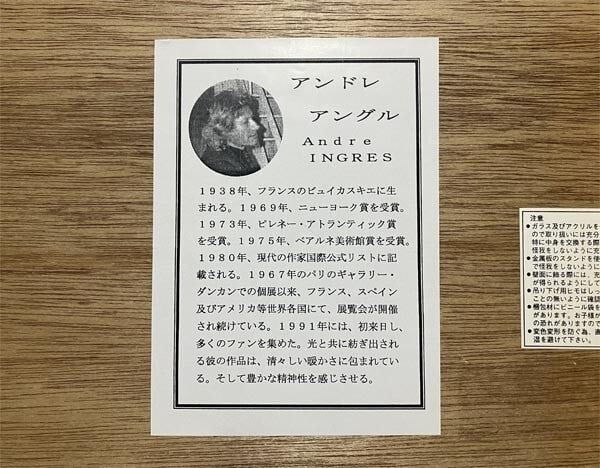 アンドレ
アングル
Andre
INGRES
1938年、フランスのピュイカスキエに生
まれる。1969年、ニューヨーク賞を受賞。
1973年、ピレネー・アトランティック賞
を受賞。1975年、ベアルネ美術館賞を受賞。
1980年、現代の作家国際公式リストに記
載される。1967年のパリのギャラリー・
ダンカンでの個展以来、フランス、スペイン
及びアメリカ等世界各国にて、展覧会が開催
され続けている。1991年には、初来日し、
多くのファンを集めた。光と共に紡ぎ出され
る彼の作品は、清々しい暖かさに包まれてい
る。そして豊かな精神性を感じさせる。
注意
●ガラス及びアクリルを
ので取り扱いには充分
特に中身を交換する際
怪我をしないように充
●金属板のスタンドを使
で怪我をしないように
●壁面に飾る際には、充
が得られるようにして
●吊り下げ用ヒモはしっ
ことの無いように確認
●梱包材にビニール袋を
があります。お子様が
の恐れがありますので
●変色変形を防ぐ為、直
温を避けて下さい。